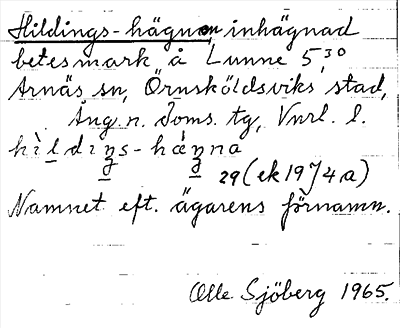 Hildings-hägnen, inhägnad
betesmark å Lunne 5,30
Arnäs sn, Örnsköldsviks stad,
Ång.n. doms. tg, Vnrl. l.
hìldıŋs-hàŋna
29 (ek 1974 a)
Namnet eft. ägarens förnamn.
Olle Sjöberg 1965.